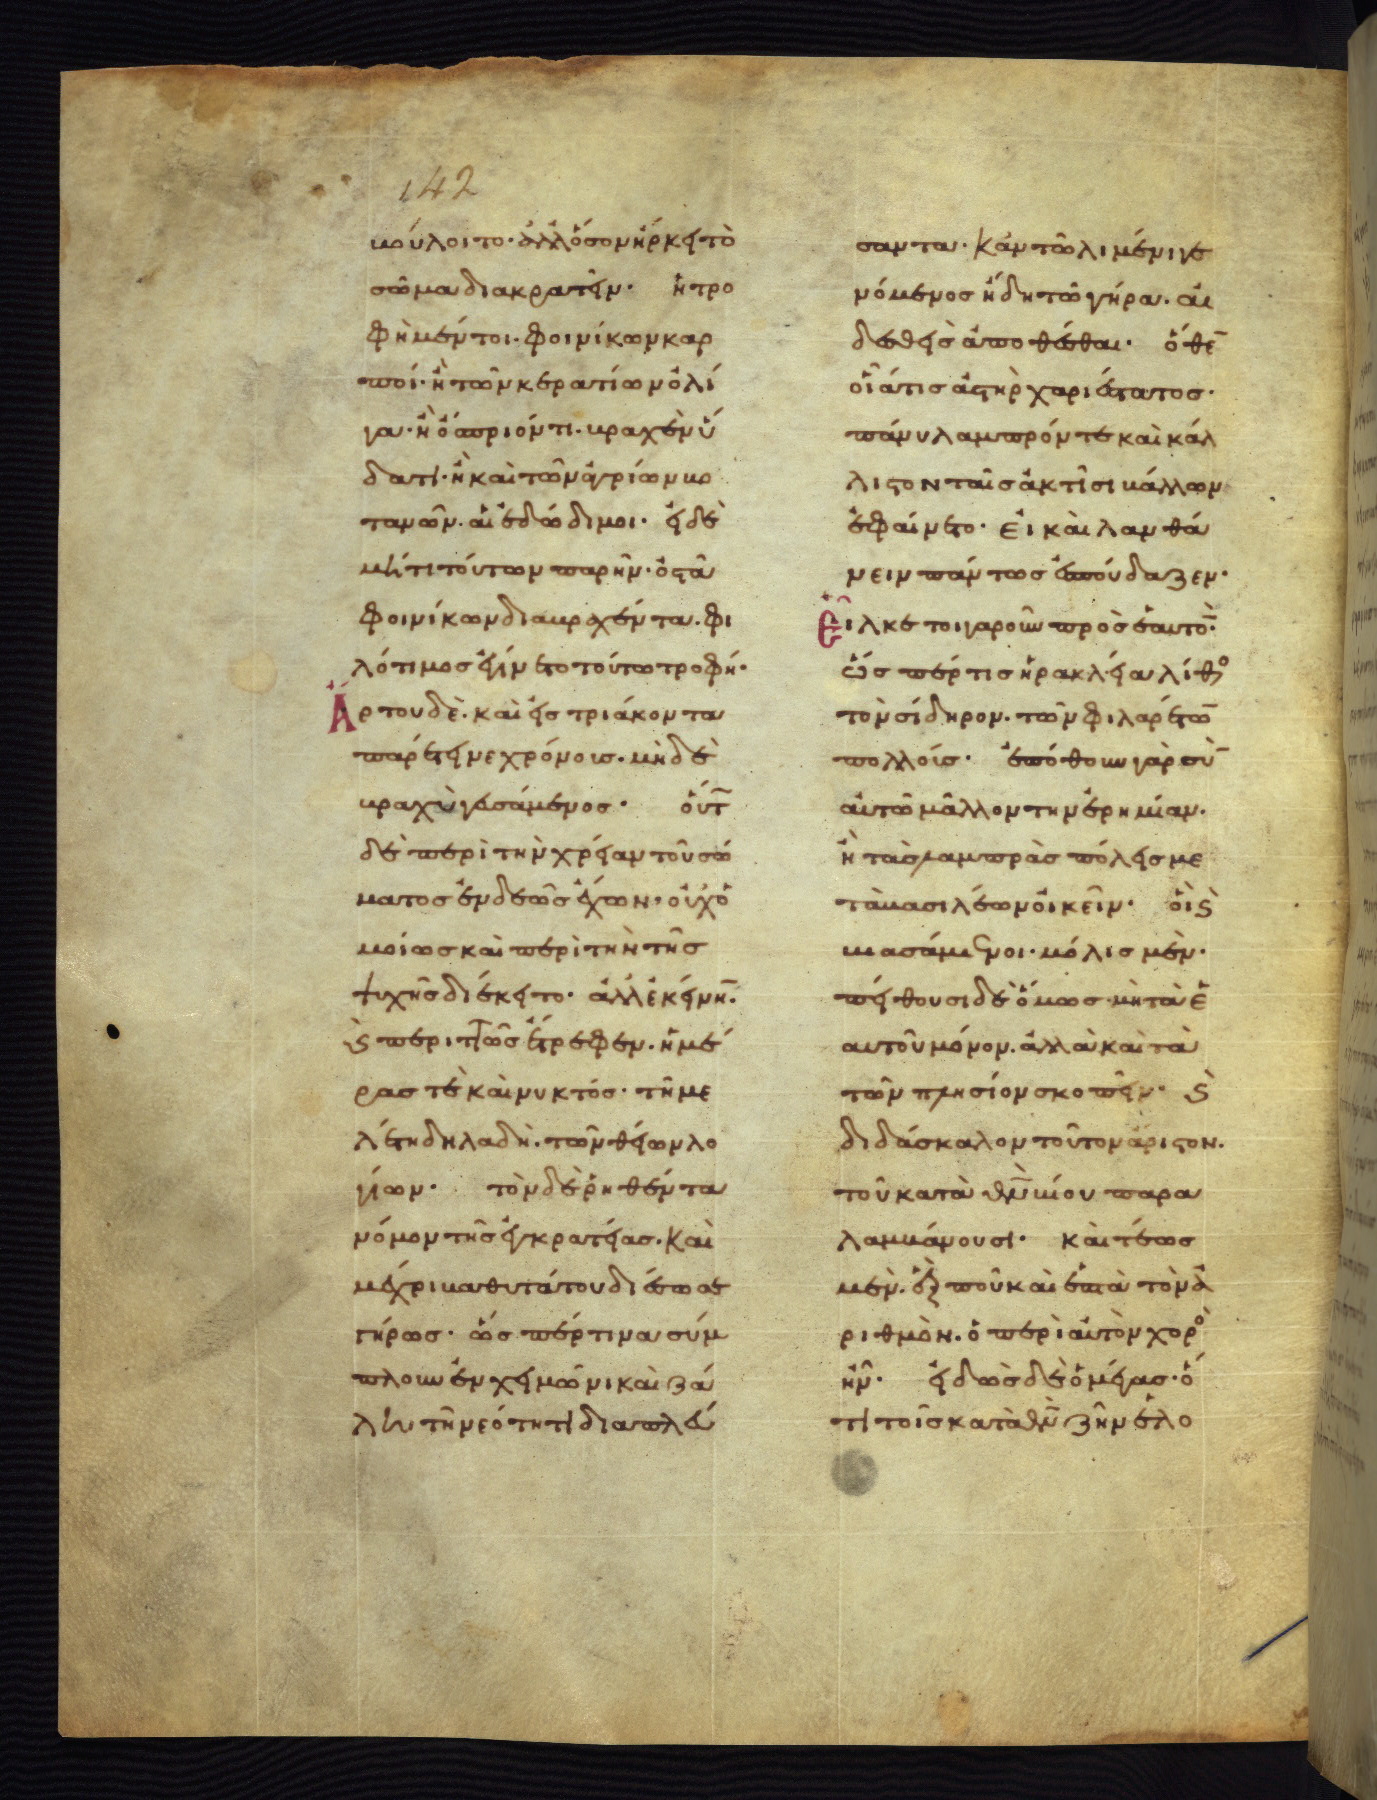 142
βούλοιτο· ἀλλ' ὅσον ἤρκει τὸ
σῶμα διακρατεῖν· ἡ τρο
φὴ μέντοι· φοινίκων καρ
ποί· ἢ τῶν κερατίων ὀλί
γα· ἢ ὀσπρίον τι βραχὲν ὕ
δατι· ἢ καὶ τῶν ἀγρίων βο
τανῶν· αἱ ἐδώδιμοι· εἰ δὲ
μή τι τούτων παρῆν· ὀστᾶ
φοινίκων διαβραχέντα· φι
λότιμος ἐγίνετο τούτω τροφή·
Ἄρτου δὲ· καὶ εἰς τριάκοντα
παρέτεινε χρόνοις· μὴ δὲ
βραχὺ γευσάμενος· οὕτ
δὲ περὶ τὴν χρείαν τοῦ σώ
ματος ἐνδεῶς ἔχων· οὐχ ὁ
μοίως καὶ περὶ τὴν τῆς
ψυχῆς διέκειτο· ἀλλ' ἐκείνην·
ϗ περιττῶς ἔτρεφεν· ἡμέ
ρας τὲ καὶ νυκτός· τῆ με
λέτη δηλαδὴ· τῶν θείων λο
γίων· τὸν δὲ ῥηθέντα
νόμον τῆς ἐγκρατείας· καὶ
μέχρι βαθυτάτου διέσωσε
γήρως· ὥσπέρ τινα σύμ
πλουν ἐν χειμῶνι καὶ ζά
λη τῆ νεότητι διαπλεύ
σαντα· κἀν τῶ λιμένι γε
νόμενος ἤδη τῶ γήρα· αἰ
δεσθεὶς ἀποθέσθαι· ὅθε̄
οἷά τις ἀστὴρ χαριέστατος·
πάνυ λαμπρόν τε καὶ κάλ
λιστον ταῖς ἀκτῖσι βάλλων
ἐφαίνετο· εἰ καὶ λανθά
νειν πάντως ἐσπούδαζεν·
Εἷλκε τοιγαροῦν πρὸς ἑαυτὸ̄·
ὥσπέρ τις ἡρακλεία λίθο
τὸν σίδηρον· τῶν φιλαρέτω̄
πολλούς· ἐπόθουν γὰρ σὺ̄
αὐτῶ μᾶλλον τὴν ἐρημίαν·
ἢ τὰς λαμπρὰς πόλεις με
τὰ βασιλέων οἰκεῖν· οὓς
βιασάμενοι· μόλις μὲν·
πείθουσι δὲ ὅμως· μὴ τὰ ἑ
αυτοῦ μόνον· ἀλλὰ καὶ τὰ
τῶν πλησίον σκοπεῖν· ϗ
διδάσκαλον τοῦτον ἄριστον·
τοῦ κατὰ θν̄ βίου παρα
λαμβάνουσι· καὶ τέως
μὲν· εἰς που καὶ ἑπτὰ τὸν ἀ
ριθμὸν· ὁ περὶ αὐτὸν χορὸ
ἦν· εἰδὼς δὲ ὁ μέγας· ὅ
τι τοῖς κατὰ θν̄ ζῆν ἑλο